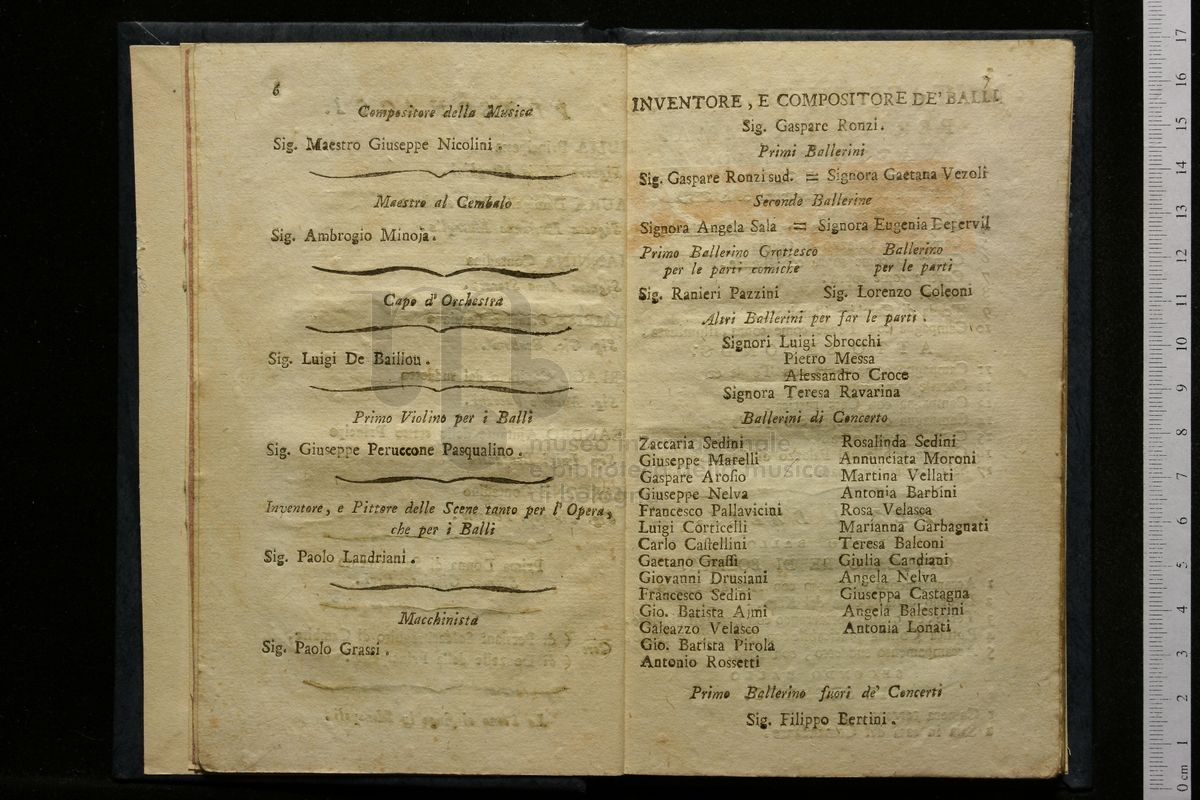 6
Compositore della Musica
Sig. Maestro Giuseppe Nicolini.
Maestro al Cembalo
Sig. Ambrogio Minoja.
Capo d'Orchestra
Sig. Luigi De Baillou.
Primo Violino per i Balli
Sig. Giuseppe Peruccone Pasqualino.
Inventore, e Pittore delle Scene tanto per l'Opera,
che per i Balli
Sig. Paolo Landriani.
Macchinista
Sig. Paolo Grassi.
7
INVENTORE, E COMPOSITORE DE' BALLI
Sig. Gaspare Ronzi.
Primi Ballerini
Sig. Gaspare Ronzi sud. = Signora Gaetana Vezoli
Seconde Ballerine
Signora Angela Sala = Signora Eugenia Depervil
Primo Ballerino Grottesco Ballerino
per le parti comiche per le parti
Sig. Ranieri Pazzini Sig. Lorenzo Coleoni
Altri Ballerini per far le parti.
Signori Luigi Sbrocchi
Pietro Messa
Alessandro Croce
Signora Teresa Ravarina
Ballerini di Concerto
Zaccaria Sedini Rosalinda Sedini
Giuseppe Marelli Annunciata Moroni
Gaspare Arosio Martina Vellati
Giuseppe Nelva Antonia Barbini
Francesco Pallavicini Rosa Velasca
Luigi Corticelli Marianna Garbagnati
Carlo Castellini Teresa Balconi
Gaetano Grassi Giulia Candiani
Giovanni Drusiani Angela Nelva
Francesco Sedini Giuseppa Castagna
Gio. Batista Ajmi Angela Balestrini
Galeazzo Velasco Antonia Lonati
Gio. Batista Pirola
Antonio Rossetti
Primo Ballerino fuori de' Concerti
Sig. Filippo Bertini.
museo internazionale
e biblioteca della musica
di bologna
0 cm 1 2 3 4 5 6 7 8 9 10 11 12 13 14 15 16 17